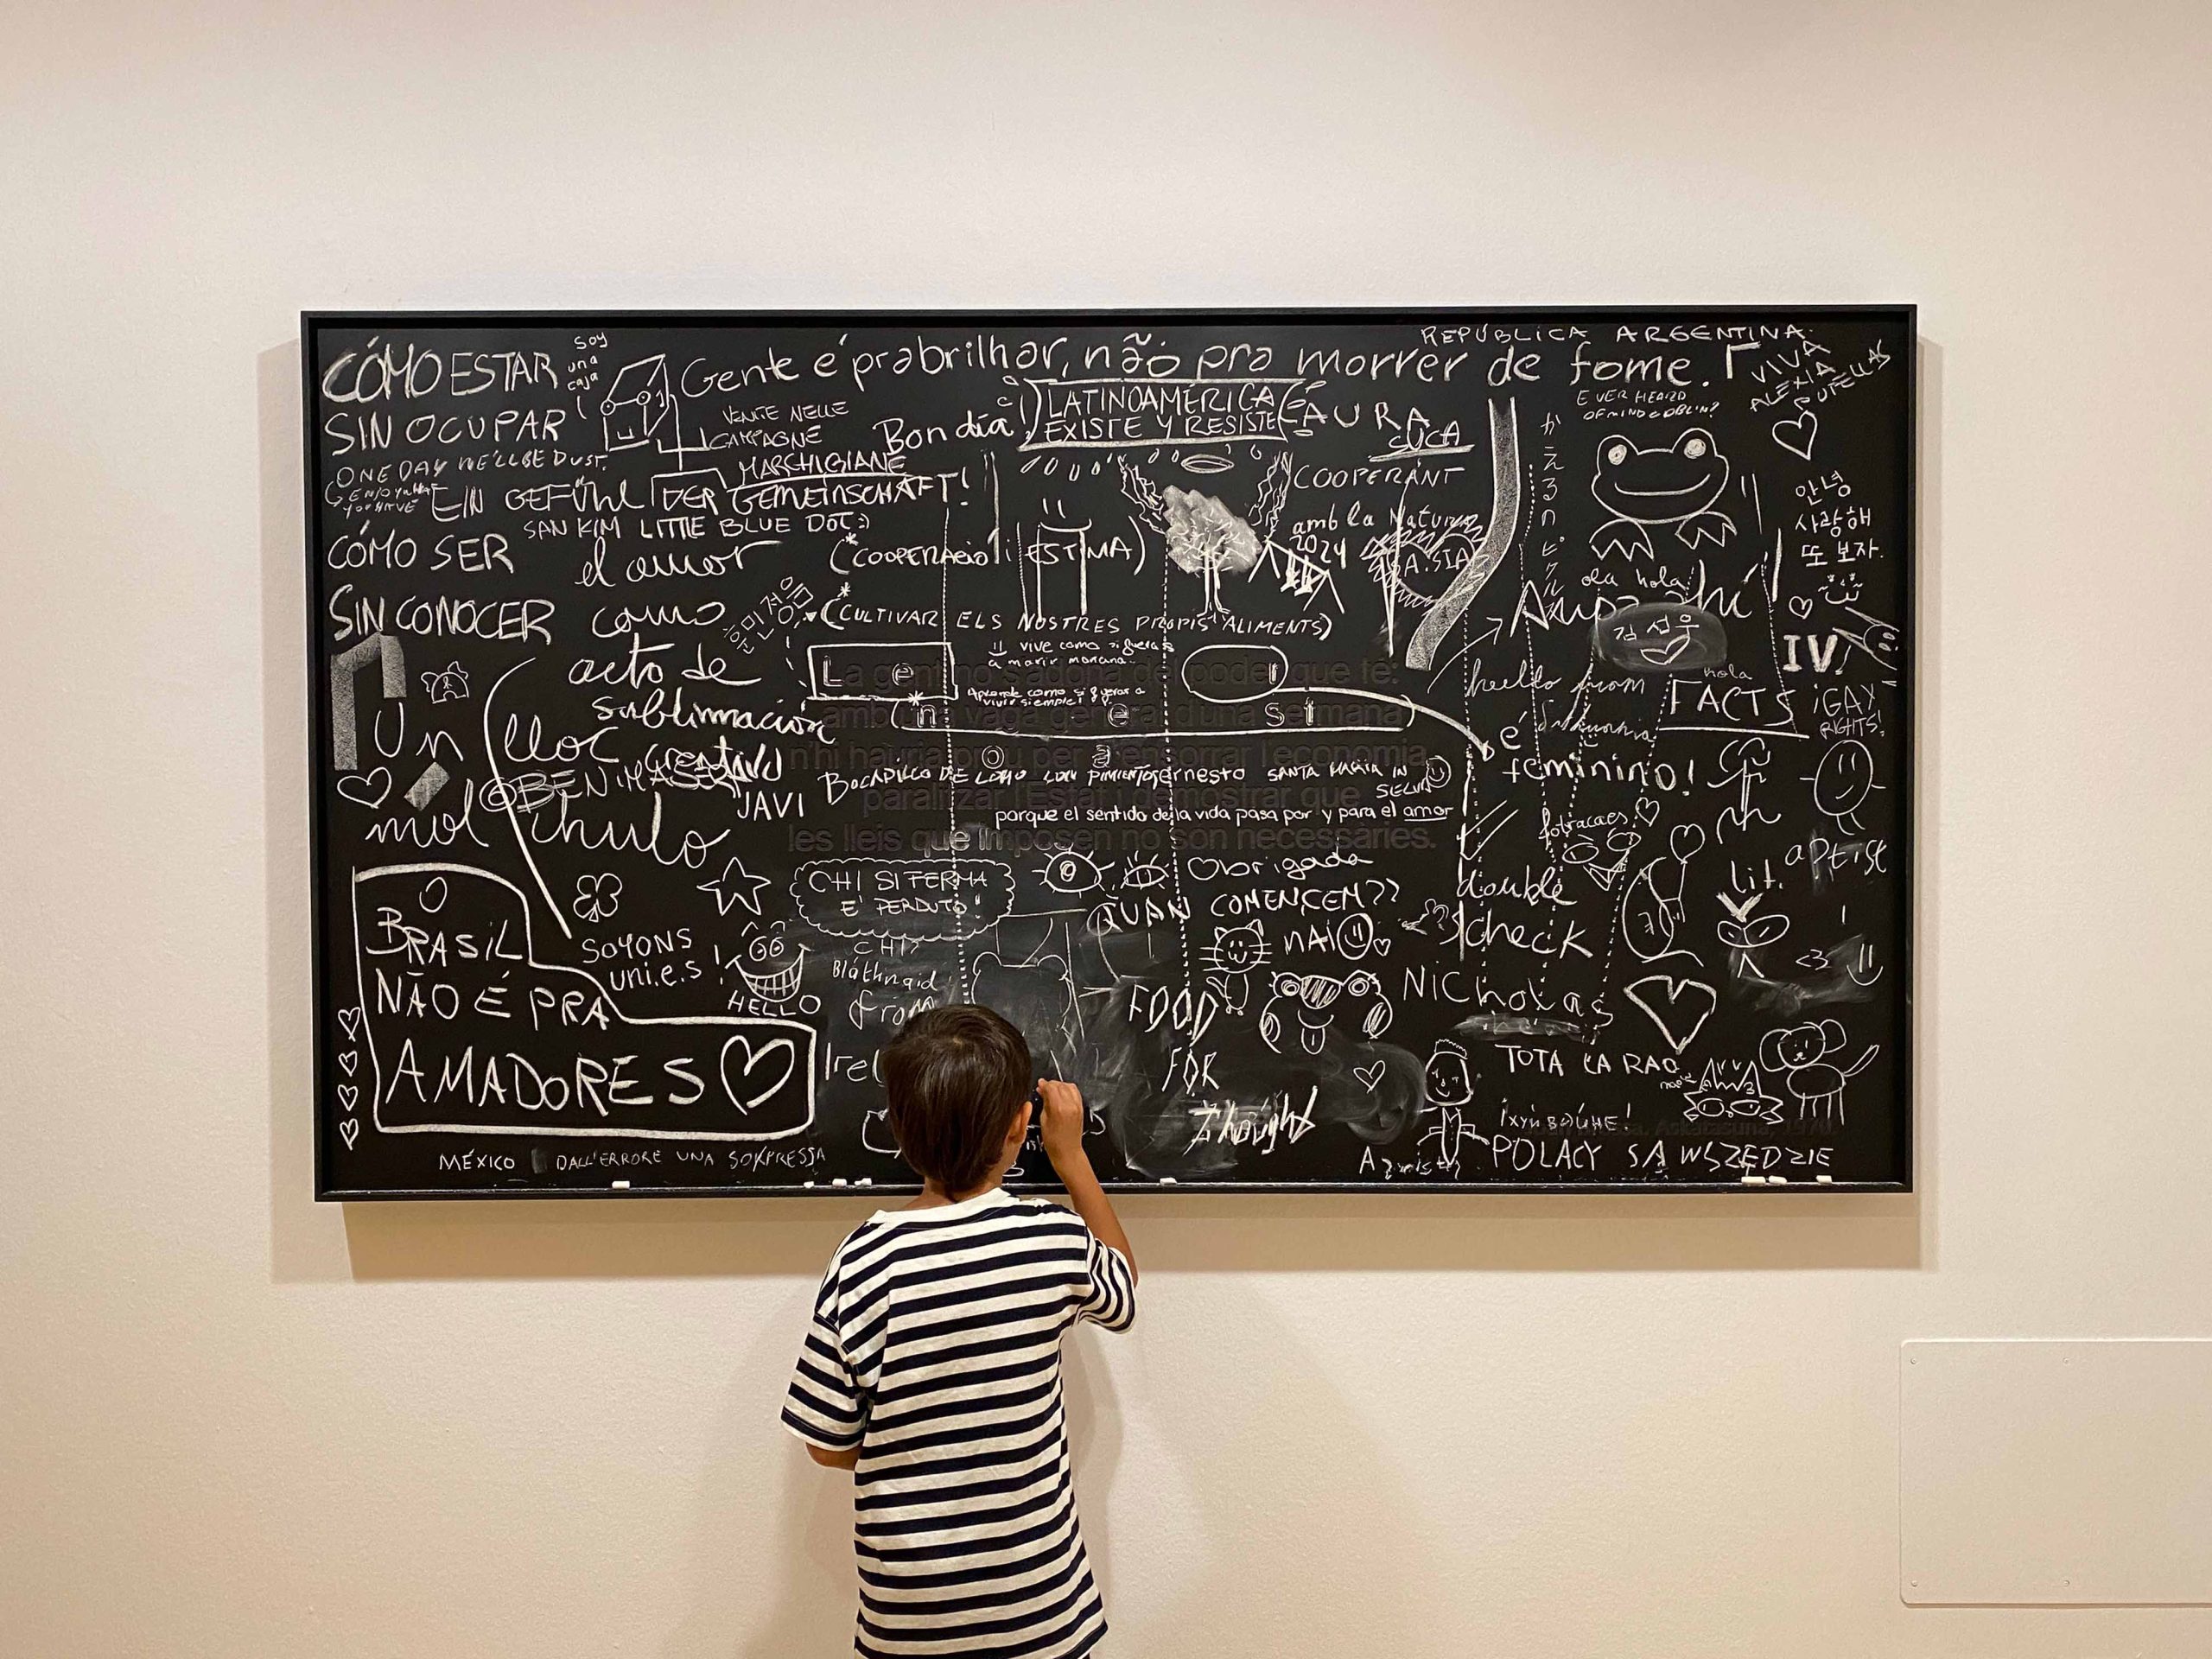 REPÚBLICA ARGENTINA
CÓMO ESTAR
SIN OCUPAR
soy
una
caja
Gente é pra brilhar, não pra morrer de fome.
VIVA
ALEXIA
PUTELLAS
VENITE NELLE
CAMPAGNE
MARCHIGIANE
Bon dia!
LATINOAMERICA
EXISTE Y RESISTE
LAURA
EVER HEARD
OF MIND GOBLIN?
ONE DAY WE'LL BE DUST.
ENJOY WHAT
YOU HAVE
EIN GEFÜHL DER GEMEINSCHAFT!
SAN KIM LITTLE BLUE DOT :)
COOPERANT
amb la Natura
2024
A.SIA
かえるのピクルス
안녕
사랑해
또 보자.
CÓMO SER
SIN CONOCER
el amor
como
acto de
sublimación
creativo
훈민정음
(*COOPERACIÓ i ESTIMA)
(*CULTIVAR ELS NOSTRES PROPIS ALIMENTS)
vive como si fueras
a morir mañana..
Aprende como si fueras a
vivir siempre
ola hola
김섬우
IV
hello from
hola
FACTS
¡GAY
RIGHTS!
La gent no s'adona del poder que té:
amb una vaga general d'una setmana
n'hi hauria prou per a ensorrar l'economia,
paralitzar l'Estat i demostrar que
les lleis que imposen no són necessàries.
Un lloc
mol chulo
JAVI
BOCADILLO DE LOMO CON PIMIENTOS
ernesto
SANTA MARIA IN
SELVA
porque el sentido de la vida pasa por y para el amor
é
feminino!
artist
lit.
CHI SI FERMA
E' PERDUTO!
CHI?
Obrigada
QUAN COMENCEM??
MAI
double
check
O
BRASIL
NÃO É PRA
AMADORES
SOYONS
uni.e.s!
HELLO
Bláthnaid
from
Irel
FOOD
FOR
Thought
Nicholas
<3
TOTA LA RAO
POLACY SA WSZEDZIE
MÉXICO
DALL'ERRORE UNA SORPRESSA